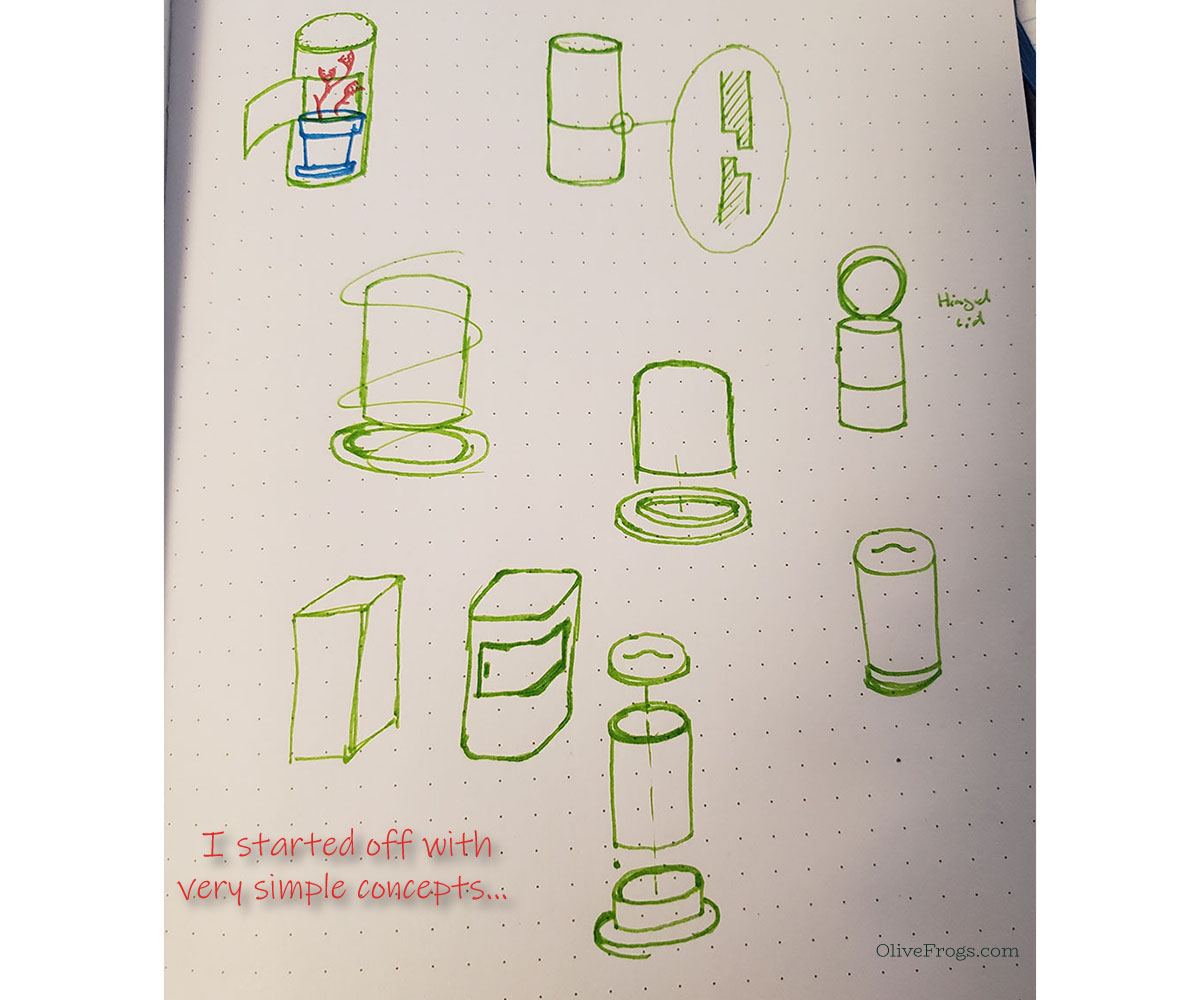 Hinged
Lid
I started off with
very simple concepts...
OliveFrogs.com